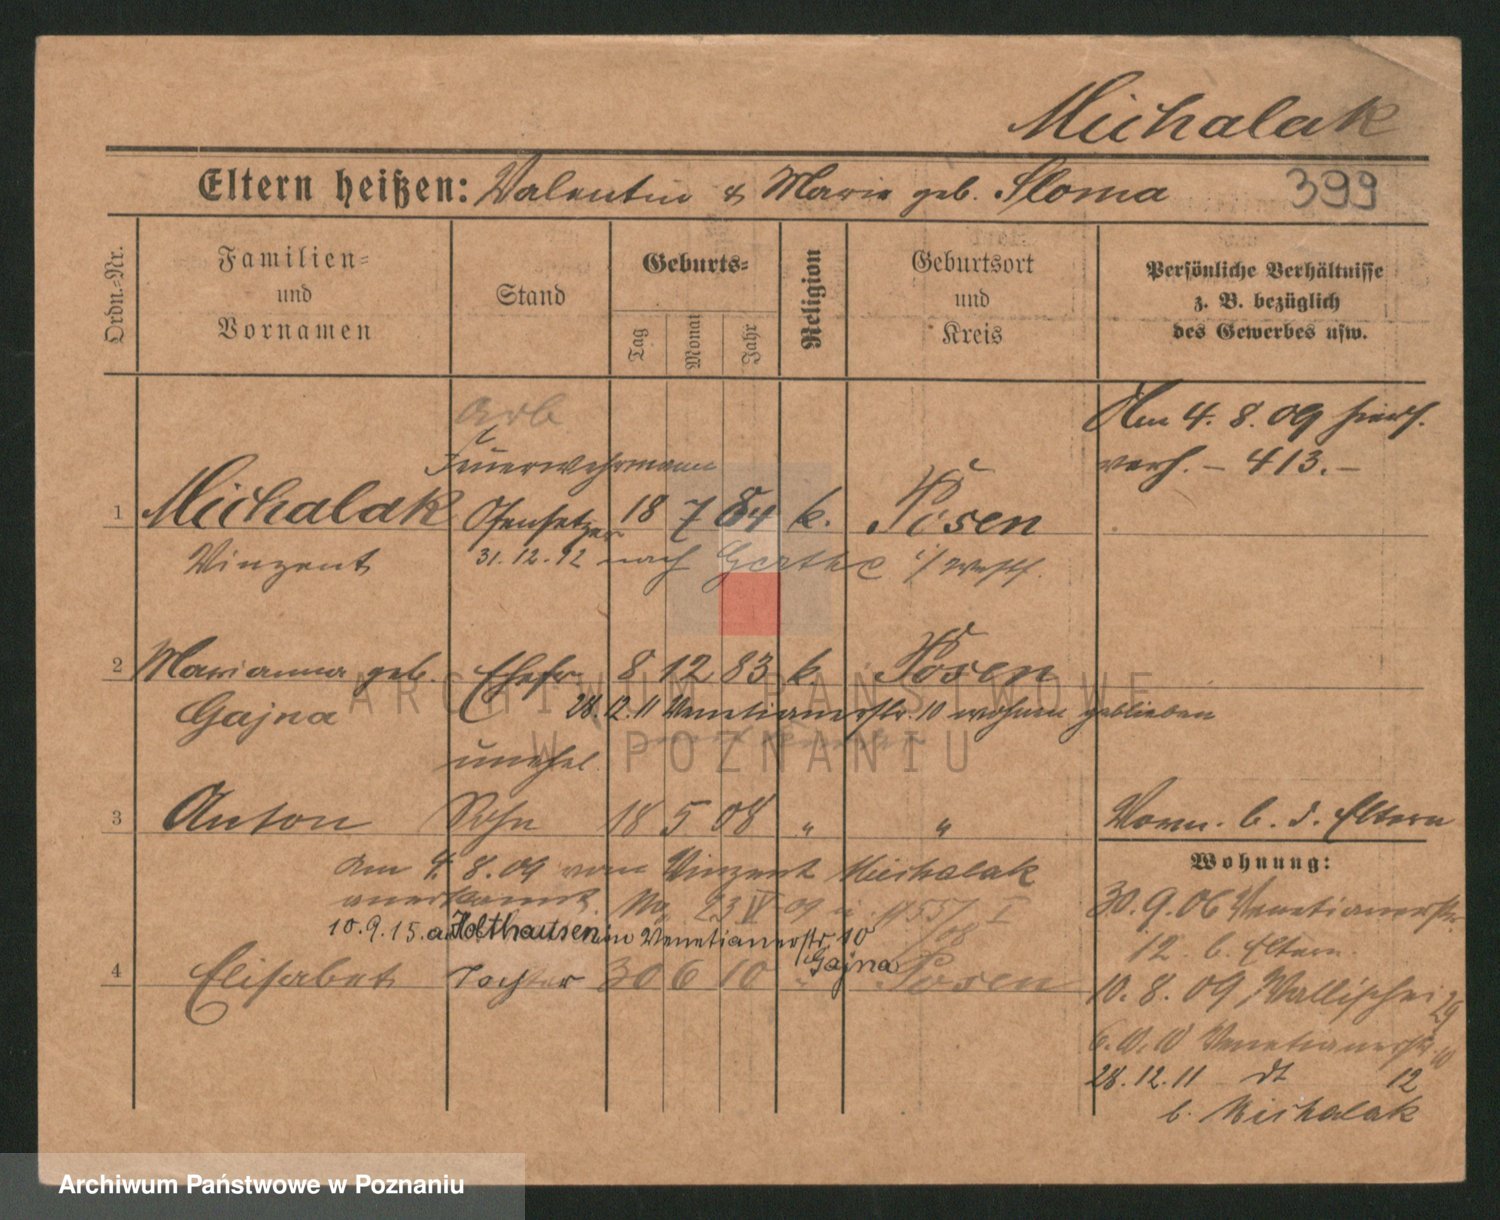 Michalak
Eltern heißen: Valentin & Marie geb. Sloma 399
Ordn.-Nr.
Familien-
und
Vornamen
Stand
Geburts-
Tag
Monat
Jahr
Religion
Geburtsort
und
Kreis
Persönliche Verhältnisse
z. B. bezüglich
des Gewerbes usw.
Arb
Am 4. 8. 09 hier
verh. – 413. –
Feuerwehrmann
1 Michalak Ofensetzer 18 7 84 k. Posen
Vinzent 31. 12. 12 nach Gerthe i/ Westf.
2 Marianna geb. Ehefr. 8 12 83 k. Posen
Gajna 28. 12. 11 Venetianerstr. 10 wohnen geblieben
unehel.
3 Anton Sohn 18 5 08 " " Vorm. b. d. Eltern
Am 4. 8. 09 vom Vinzent Michalak
anerkannt. 23 IV 09
10. 9. 15. a. Holthausen in Venetianerstr. 10
Gajna
4 Elisabet Tochter 30 6 10 " Posen
Wohnung:
30. 9. 06 Venetianerstr.
12. b. Eltern.
10. 8. 09 Wallischei 29
Venetianerstr. 10
28. 12. 11 dt 12
b. Michalak
ARCHIWUM PAŃSTWOWE
W POZNANIU
Archiwum Państwowe w Poznaniu